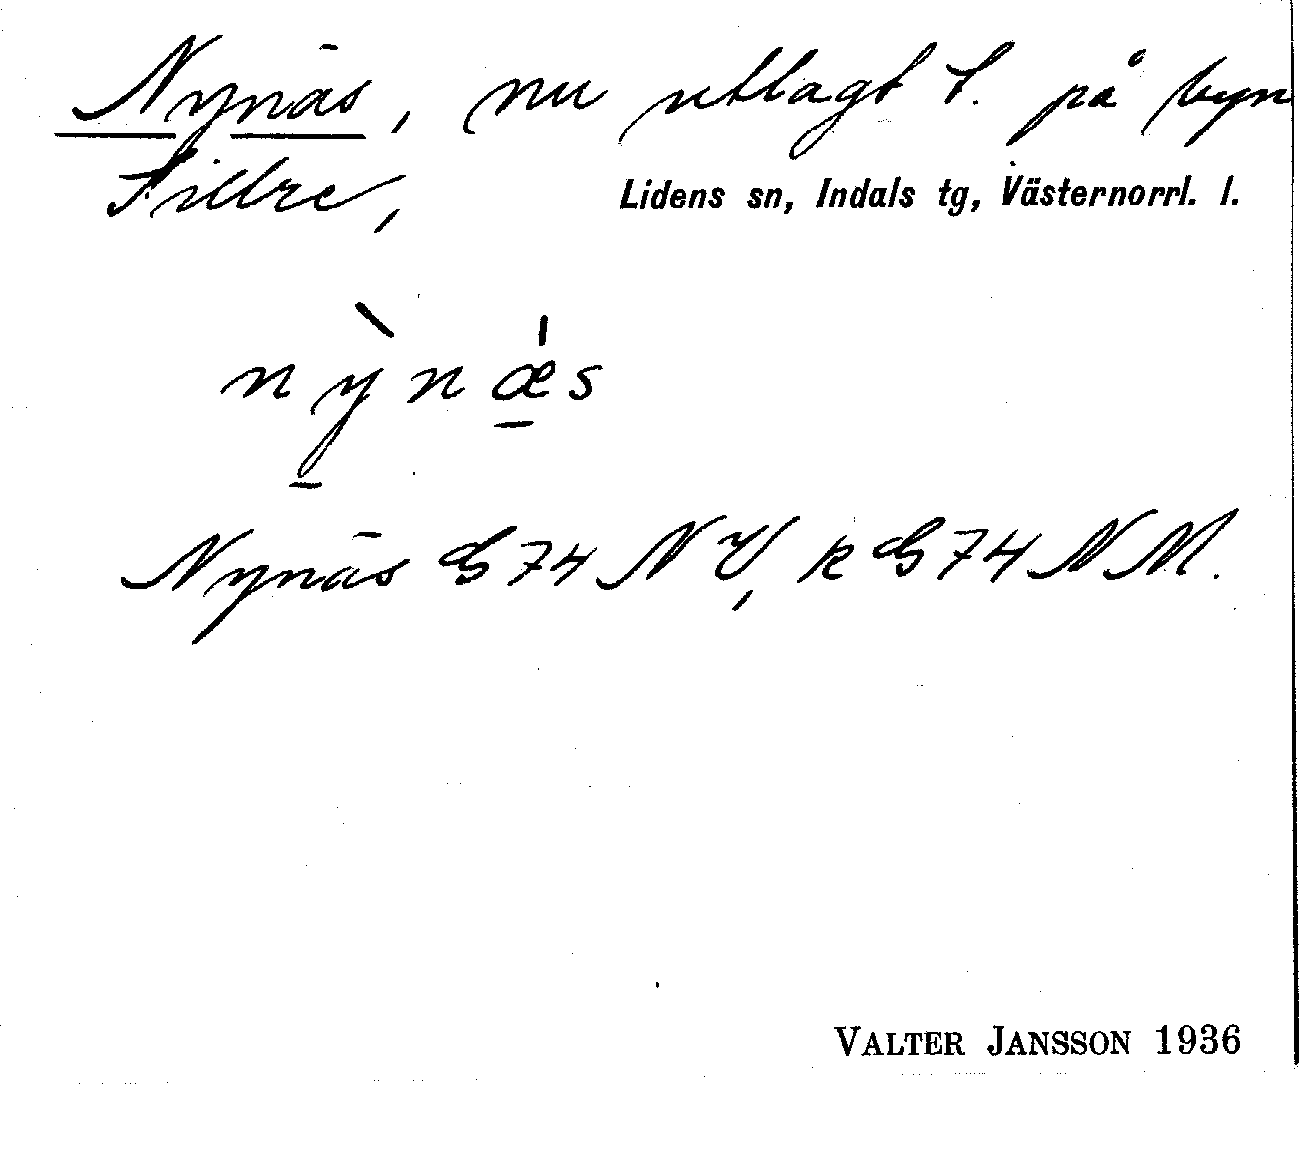 Nynäs, nu utlagt t. på byn
Sillre, Lidens sn, Indals tg, Västernorrl. l.
nỳnǽs
Nynäs G74 NV, k G74 NM.
VALTER JANSSON 1936